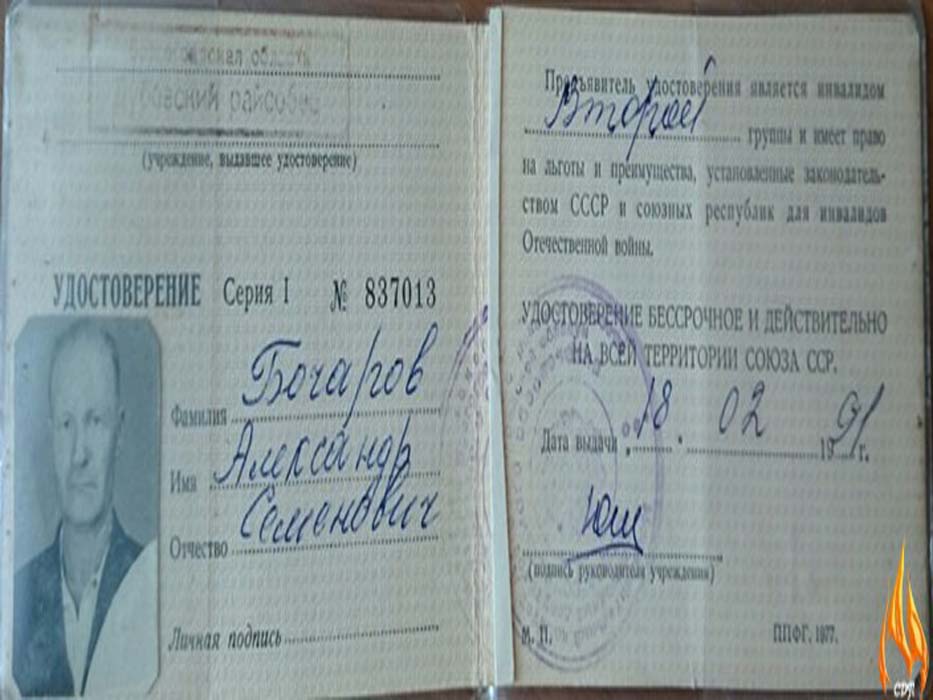 область
райсобес
(учреждение, выдавшее удостоверение)
УДОСТОВЕРЕНИЕ Серия I № 837013
Фамилия Бочаров
Имя Александр
Отчество Семенович
Личная подпись
Предъявитель удостоверения является инвалидом
Второй группы и имеет право
на льготы и преимущества, установленные законодатель-
ством СССР и союзных республик для инвалидов
Отечественной войны.
УДОСТОВЕРЕНИЕ БЕССРОЧНОЕ И ДЕЙСТВИТЕЛЬНО
НА ВСЕЙ ТЕРРИТОРИИ СОЮЗА ССР.
Дата выдачи „18. 02 1991г.
(подпись руководителя учреждения)
М. П. ППФГ. 1977.